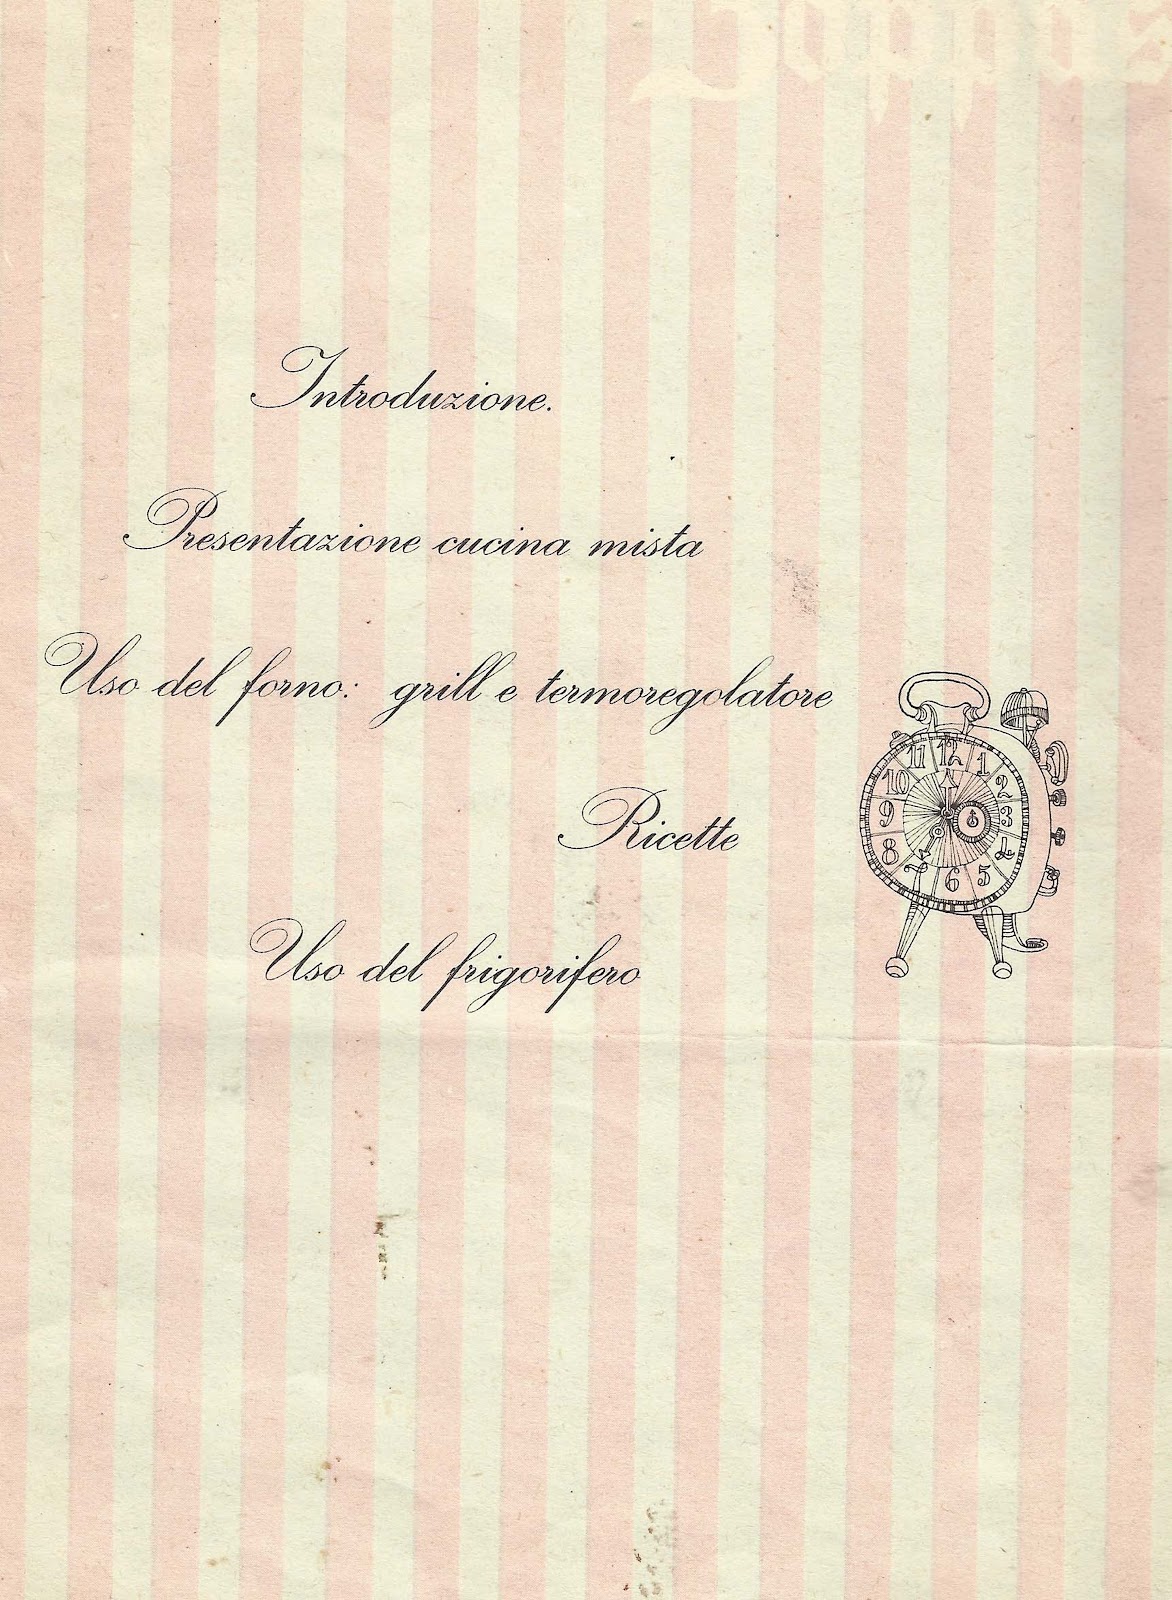 Introduzione.
Presentazione cucina mista
Uso del forno: grill e termoregolatore
Ricette
Uso del frigorifero
11 12 1
10 2
9 3
8 4
7 6 5